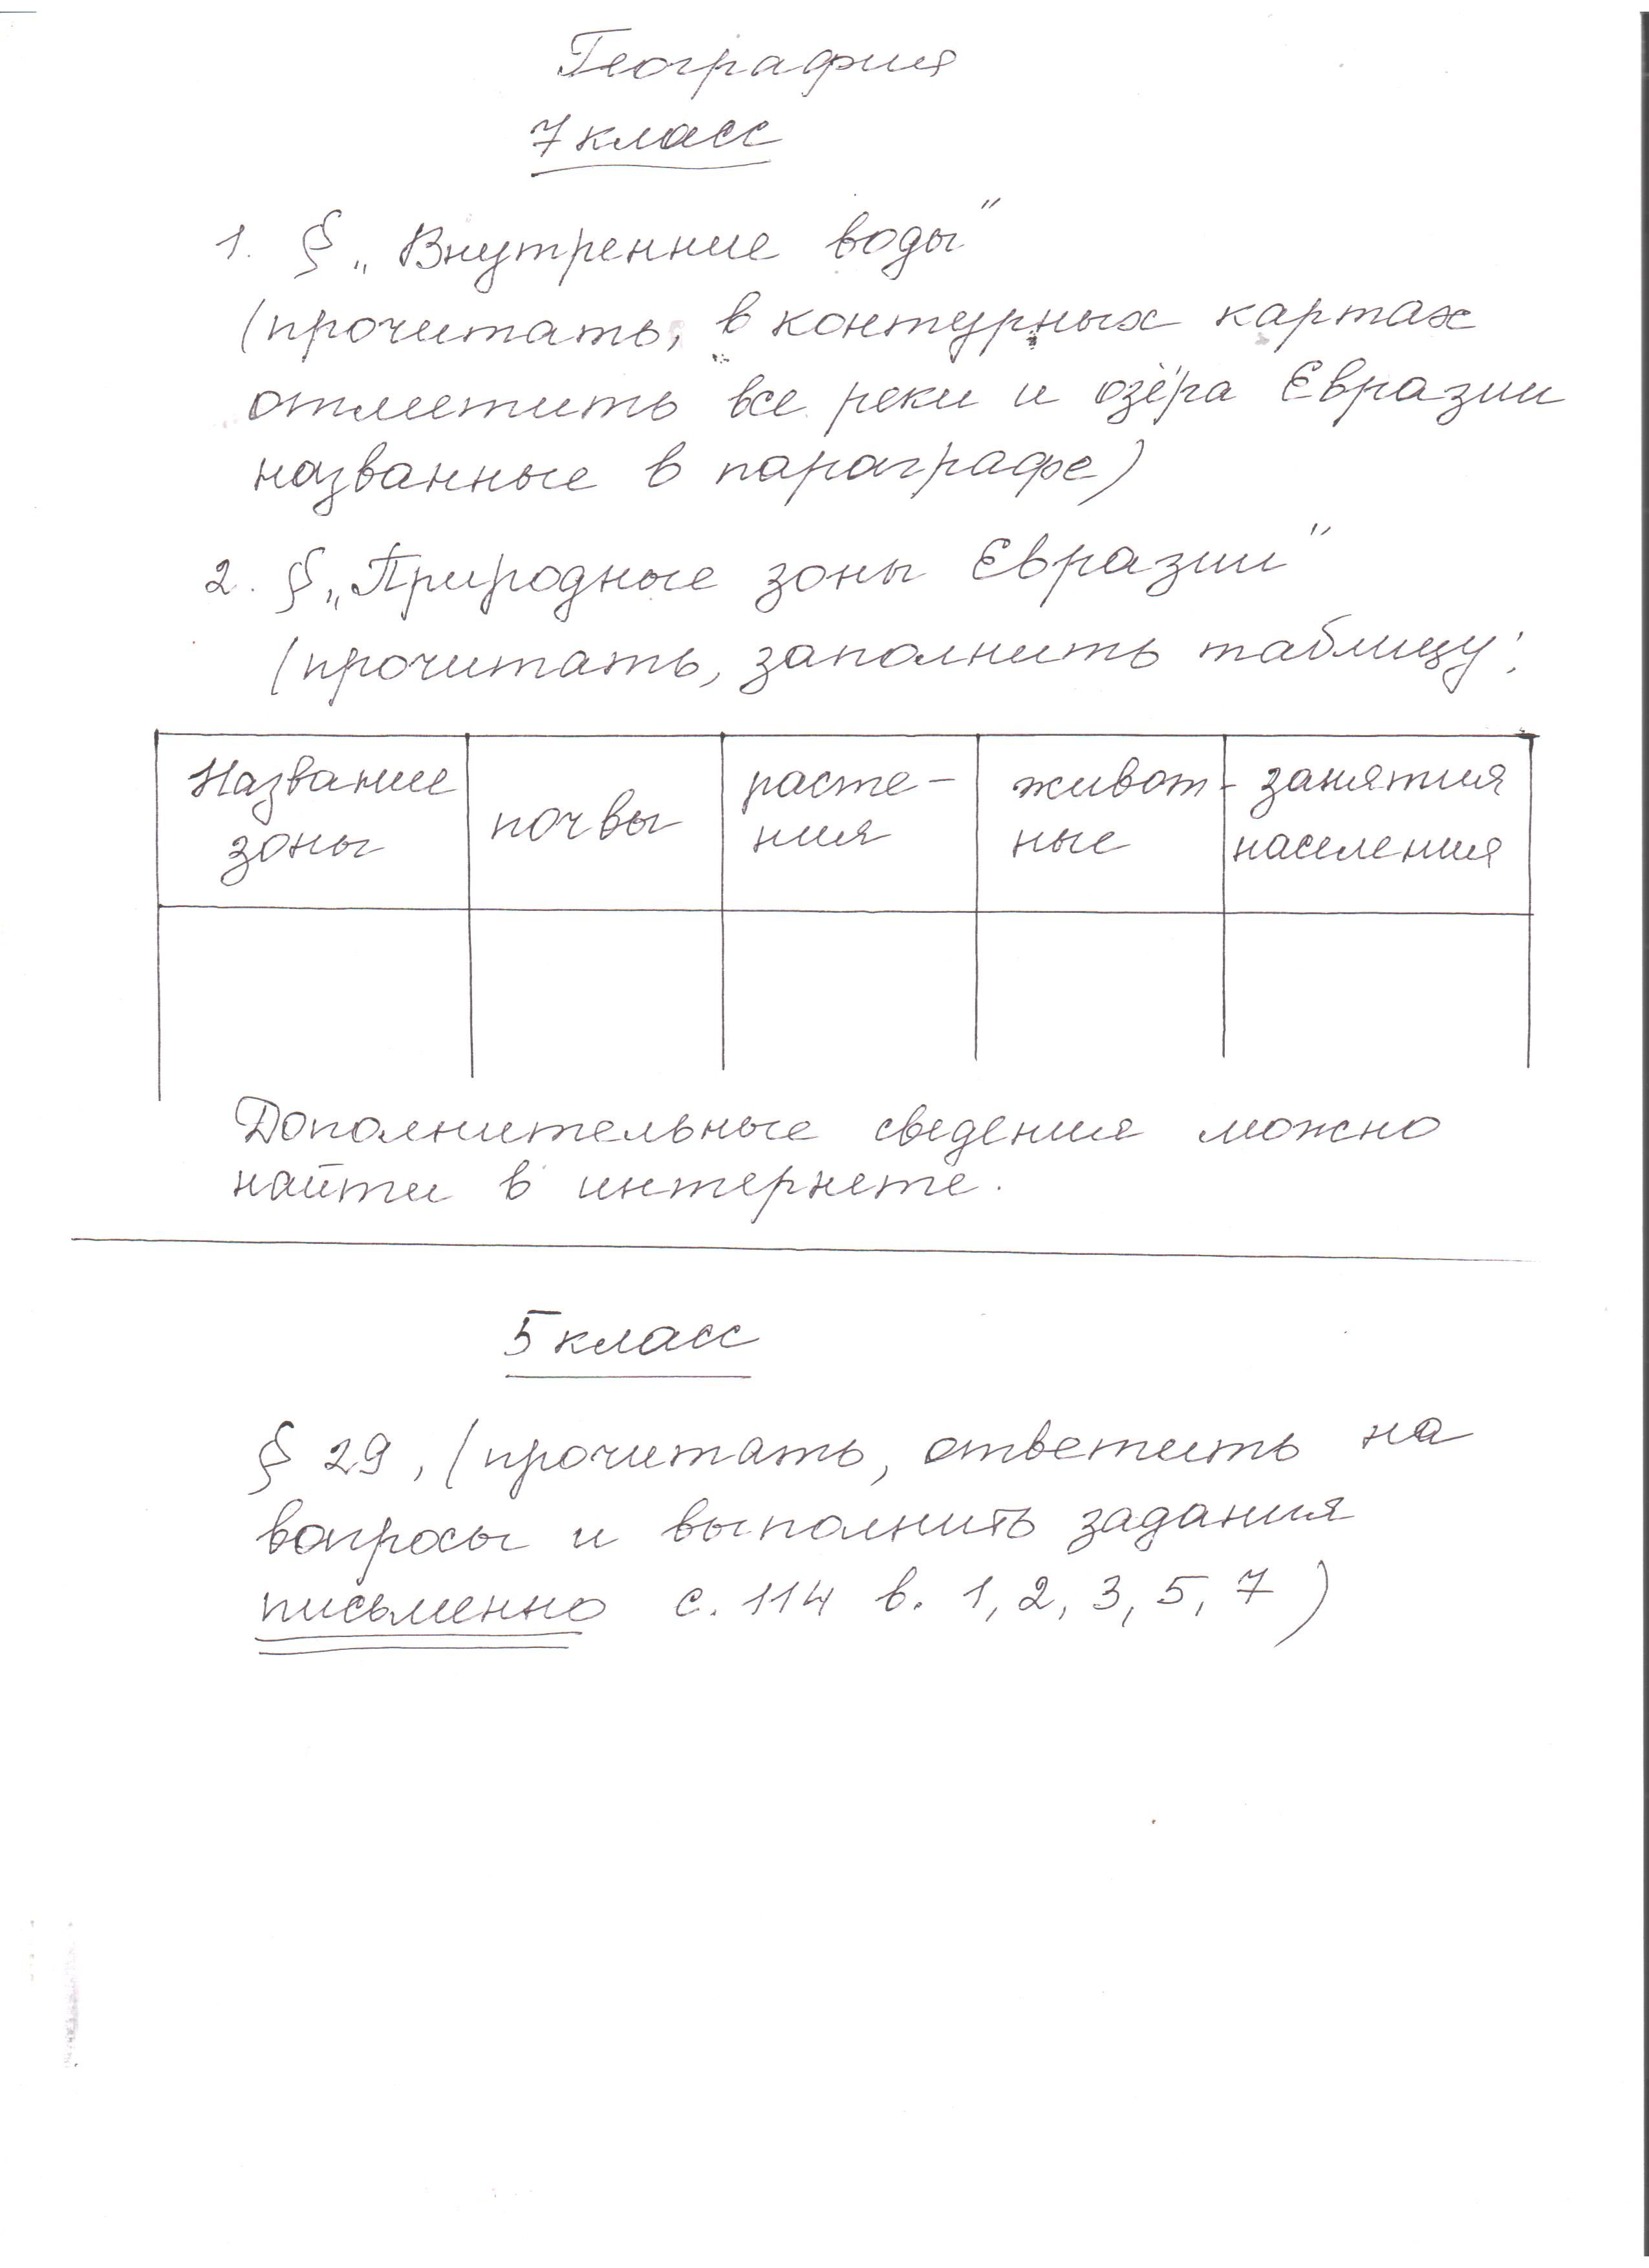 География
7 класс
1. § „Внутренние воды“
(прочитать, в контурных картах
отметить все реки и озёра Евразии
названные в параграфе)
2. § „Природные зоны Евразии“
(прочитать, заполнить таблицу;
Название зоны
почвы
расте-
ния
живот-
ные
занятия
населения
Дополнительные сведения можно
найти в интернете.
5 класс
§ 29, (прочитать, ответить на
вопросы и выполнить задания
письменно с. 114 в. 1, 2, 3, 5, 7)